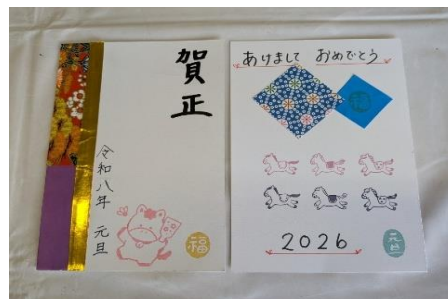 賀正
令和八年 元旦
福
あけまして おめでとう
2026
元旦